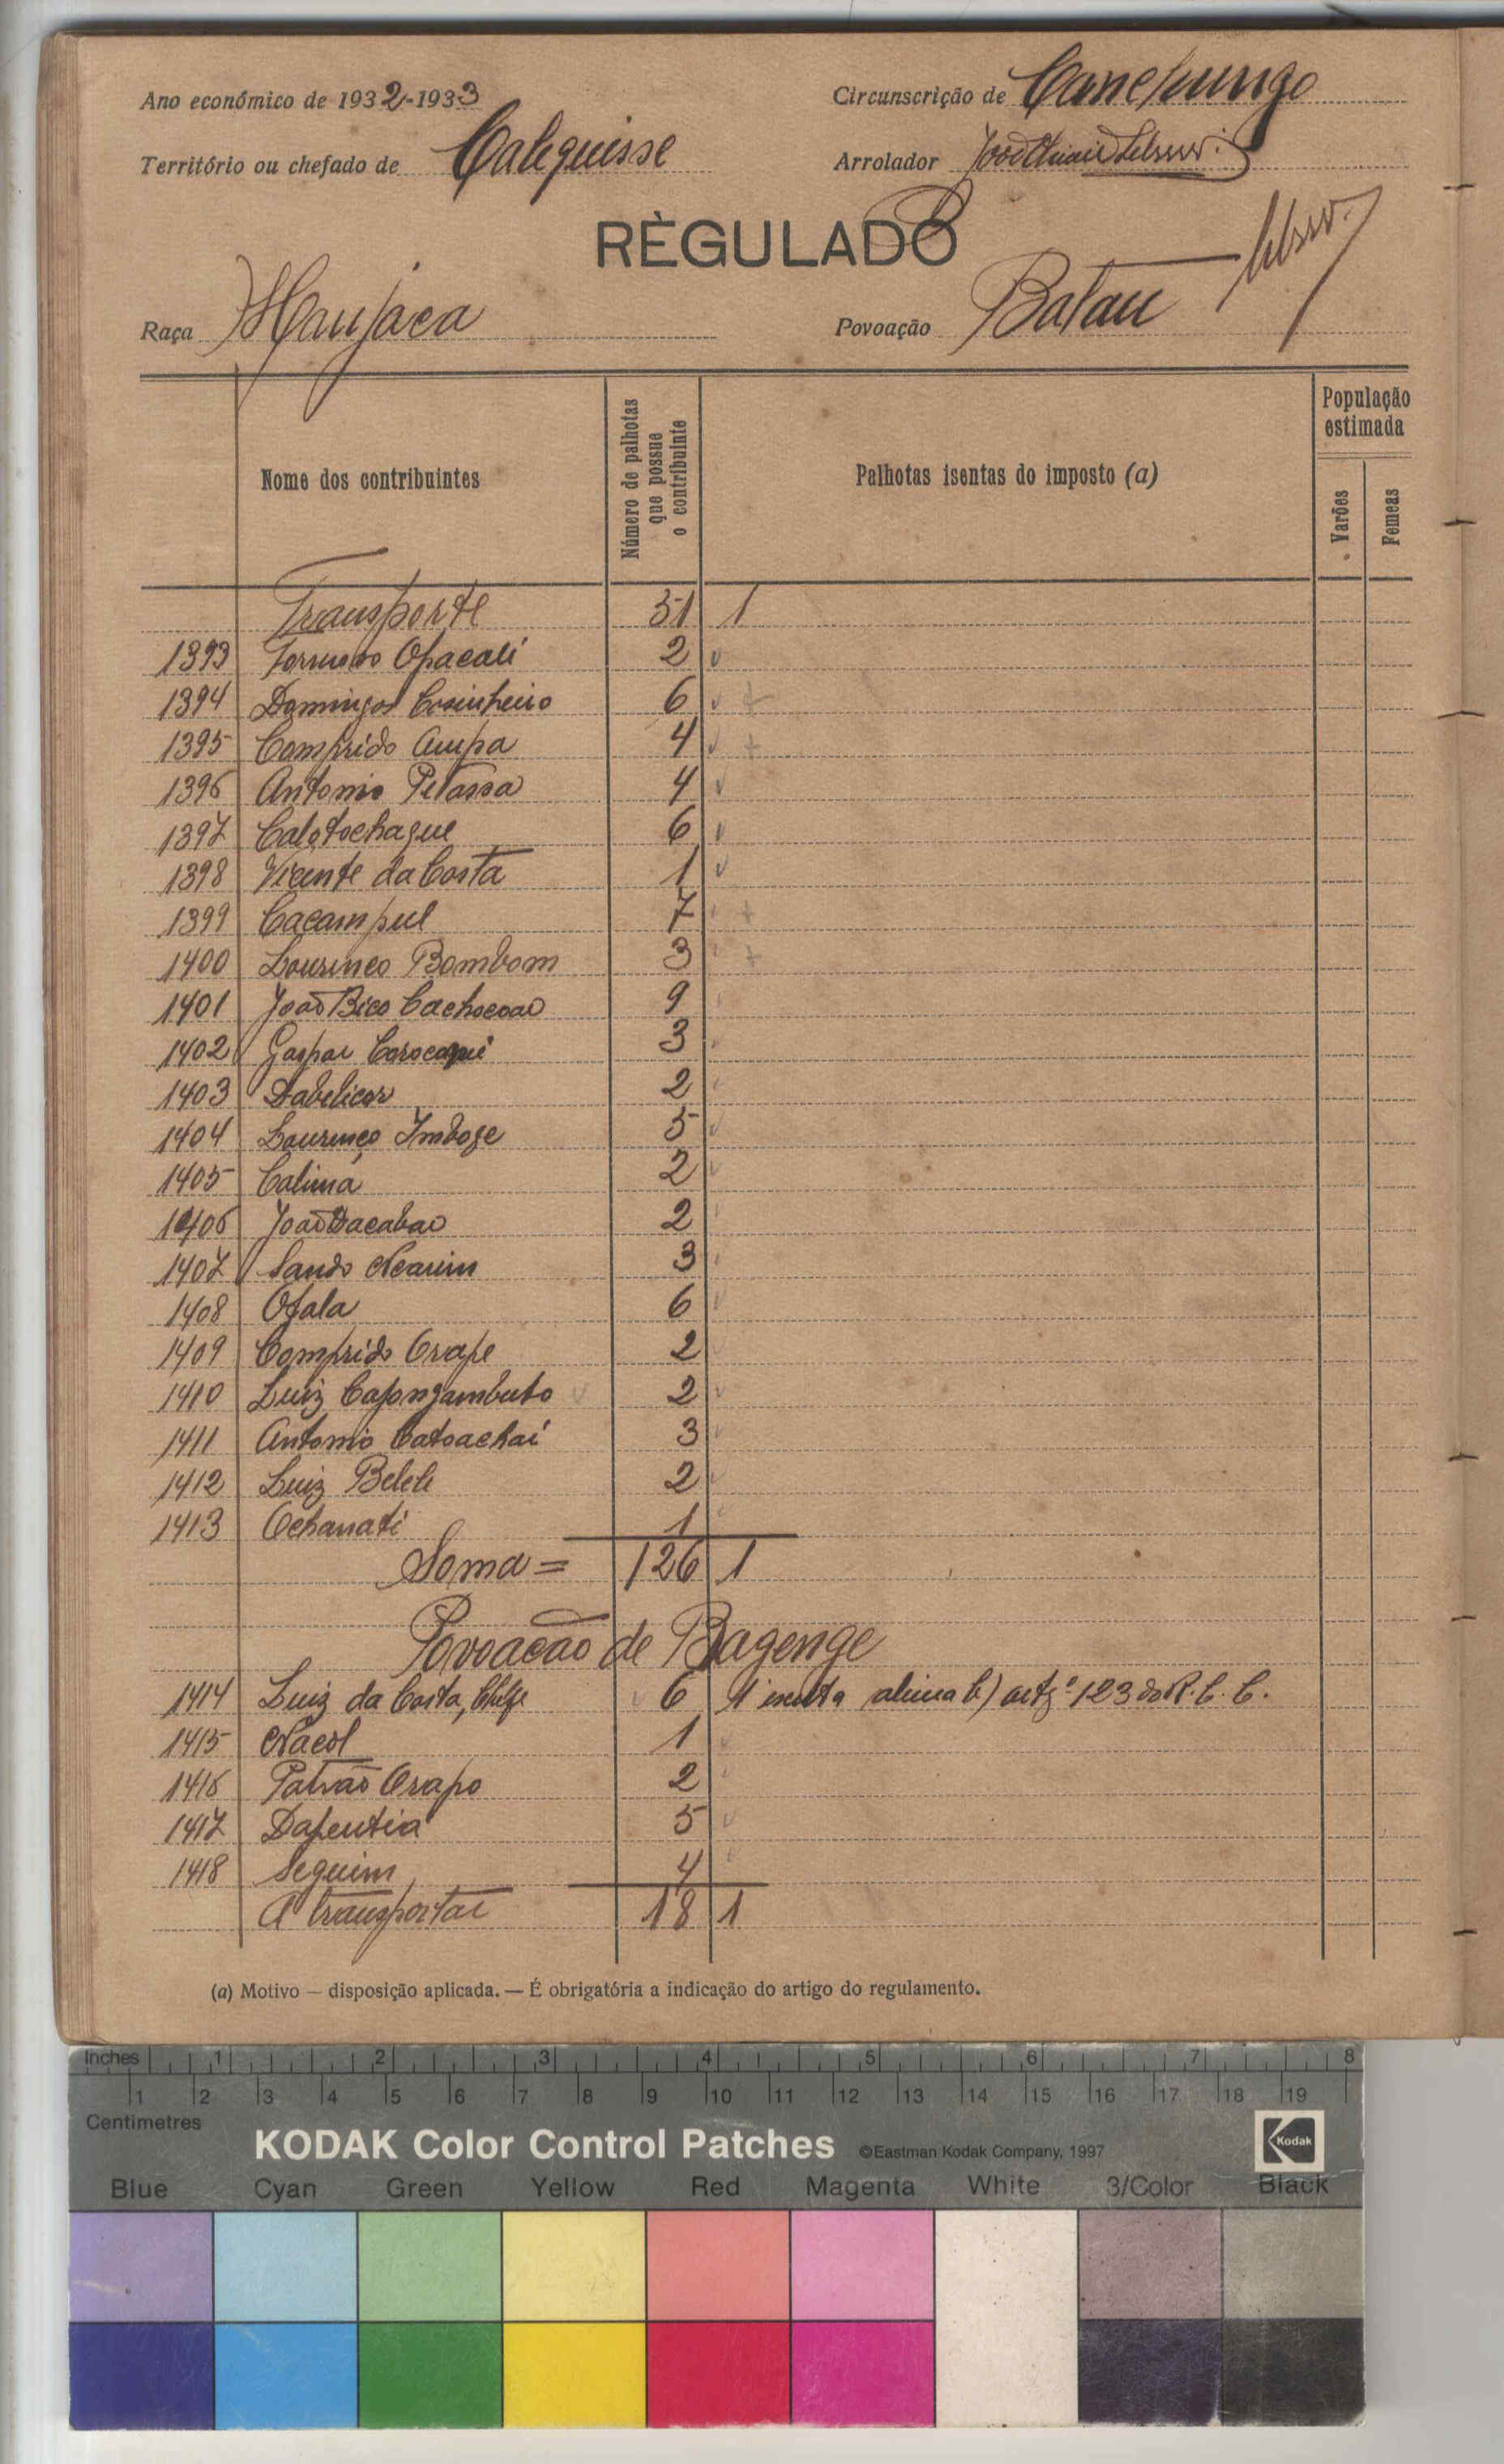 Ano económico de 1932-1933
Circunscrição de Canchungo
Território ou chefado de Calequisse
Arrolador
RÈGULADO
Raça Manjaca
Povoação Batau
Nome dos contribuintes
Número de palhotas que possue o contribuinte
Palhotas isentas do imposto (a)
População estimada
Varões
Femeas
Transporte 51 1
1393 Opacali 2
1394 Domingos Cosinheiro 6
1395 Comprido Aupa 4
1396 Antonio Petassa 4
1397 Calotochague 6
1398 Vicente da Costa 1
1399 Cacampul 7
1400 Lourenco Bombom 3
1401 João Bico Cachocoao 9
1402 Gaspar 3
1403 Dabelicor 2
1404 Lourenço Imboge 5
1405 Calimá 2
1406 João Dacabao 2
1407 Sando Ncarim 3
1408 Ofala 6
1409 Comprido Orape 2
1410 Luiz Capongambuto 2
1411 Antonio Catoachai 3
1412 Luiz Belele 2
1413 Ochanati 1
Soma = 126 1
Povoacão de Bagenge
1414 Luiz da Costa, Chefe 6 1 isenta alinea b) artgº 123 do R. C. C.
1415 Nacol 1
1416 Patrão Orapo 2
1417 Dapentia 5
1418 Seguim 4
A transportar 18 1
(a) Motivo — disposição aplicada. — É obrigatória a indicação do artigo do regulamento.
Inches 1 2 3 4 5 6 7 8
1 2 3 4 5 6 7 8 9 10 11 12 13 14 15 16 17 18 19
Centimetres
KODAK Color Control Patches ©Eastman Kodak Company, 1997 Kodak
Blue Cyan Green Yellow Red Magenta White 3/Color Black